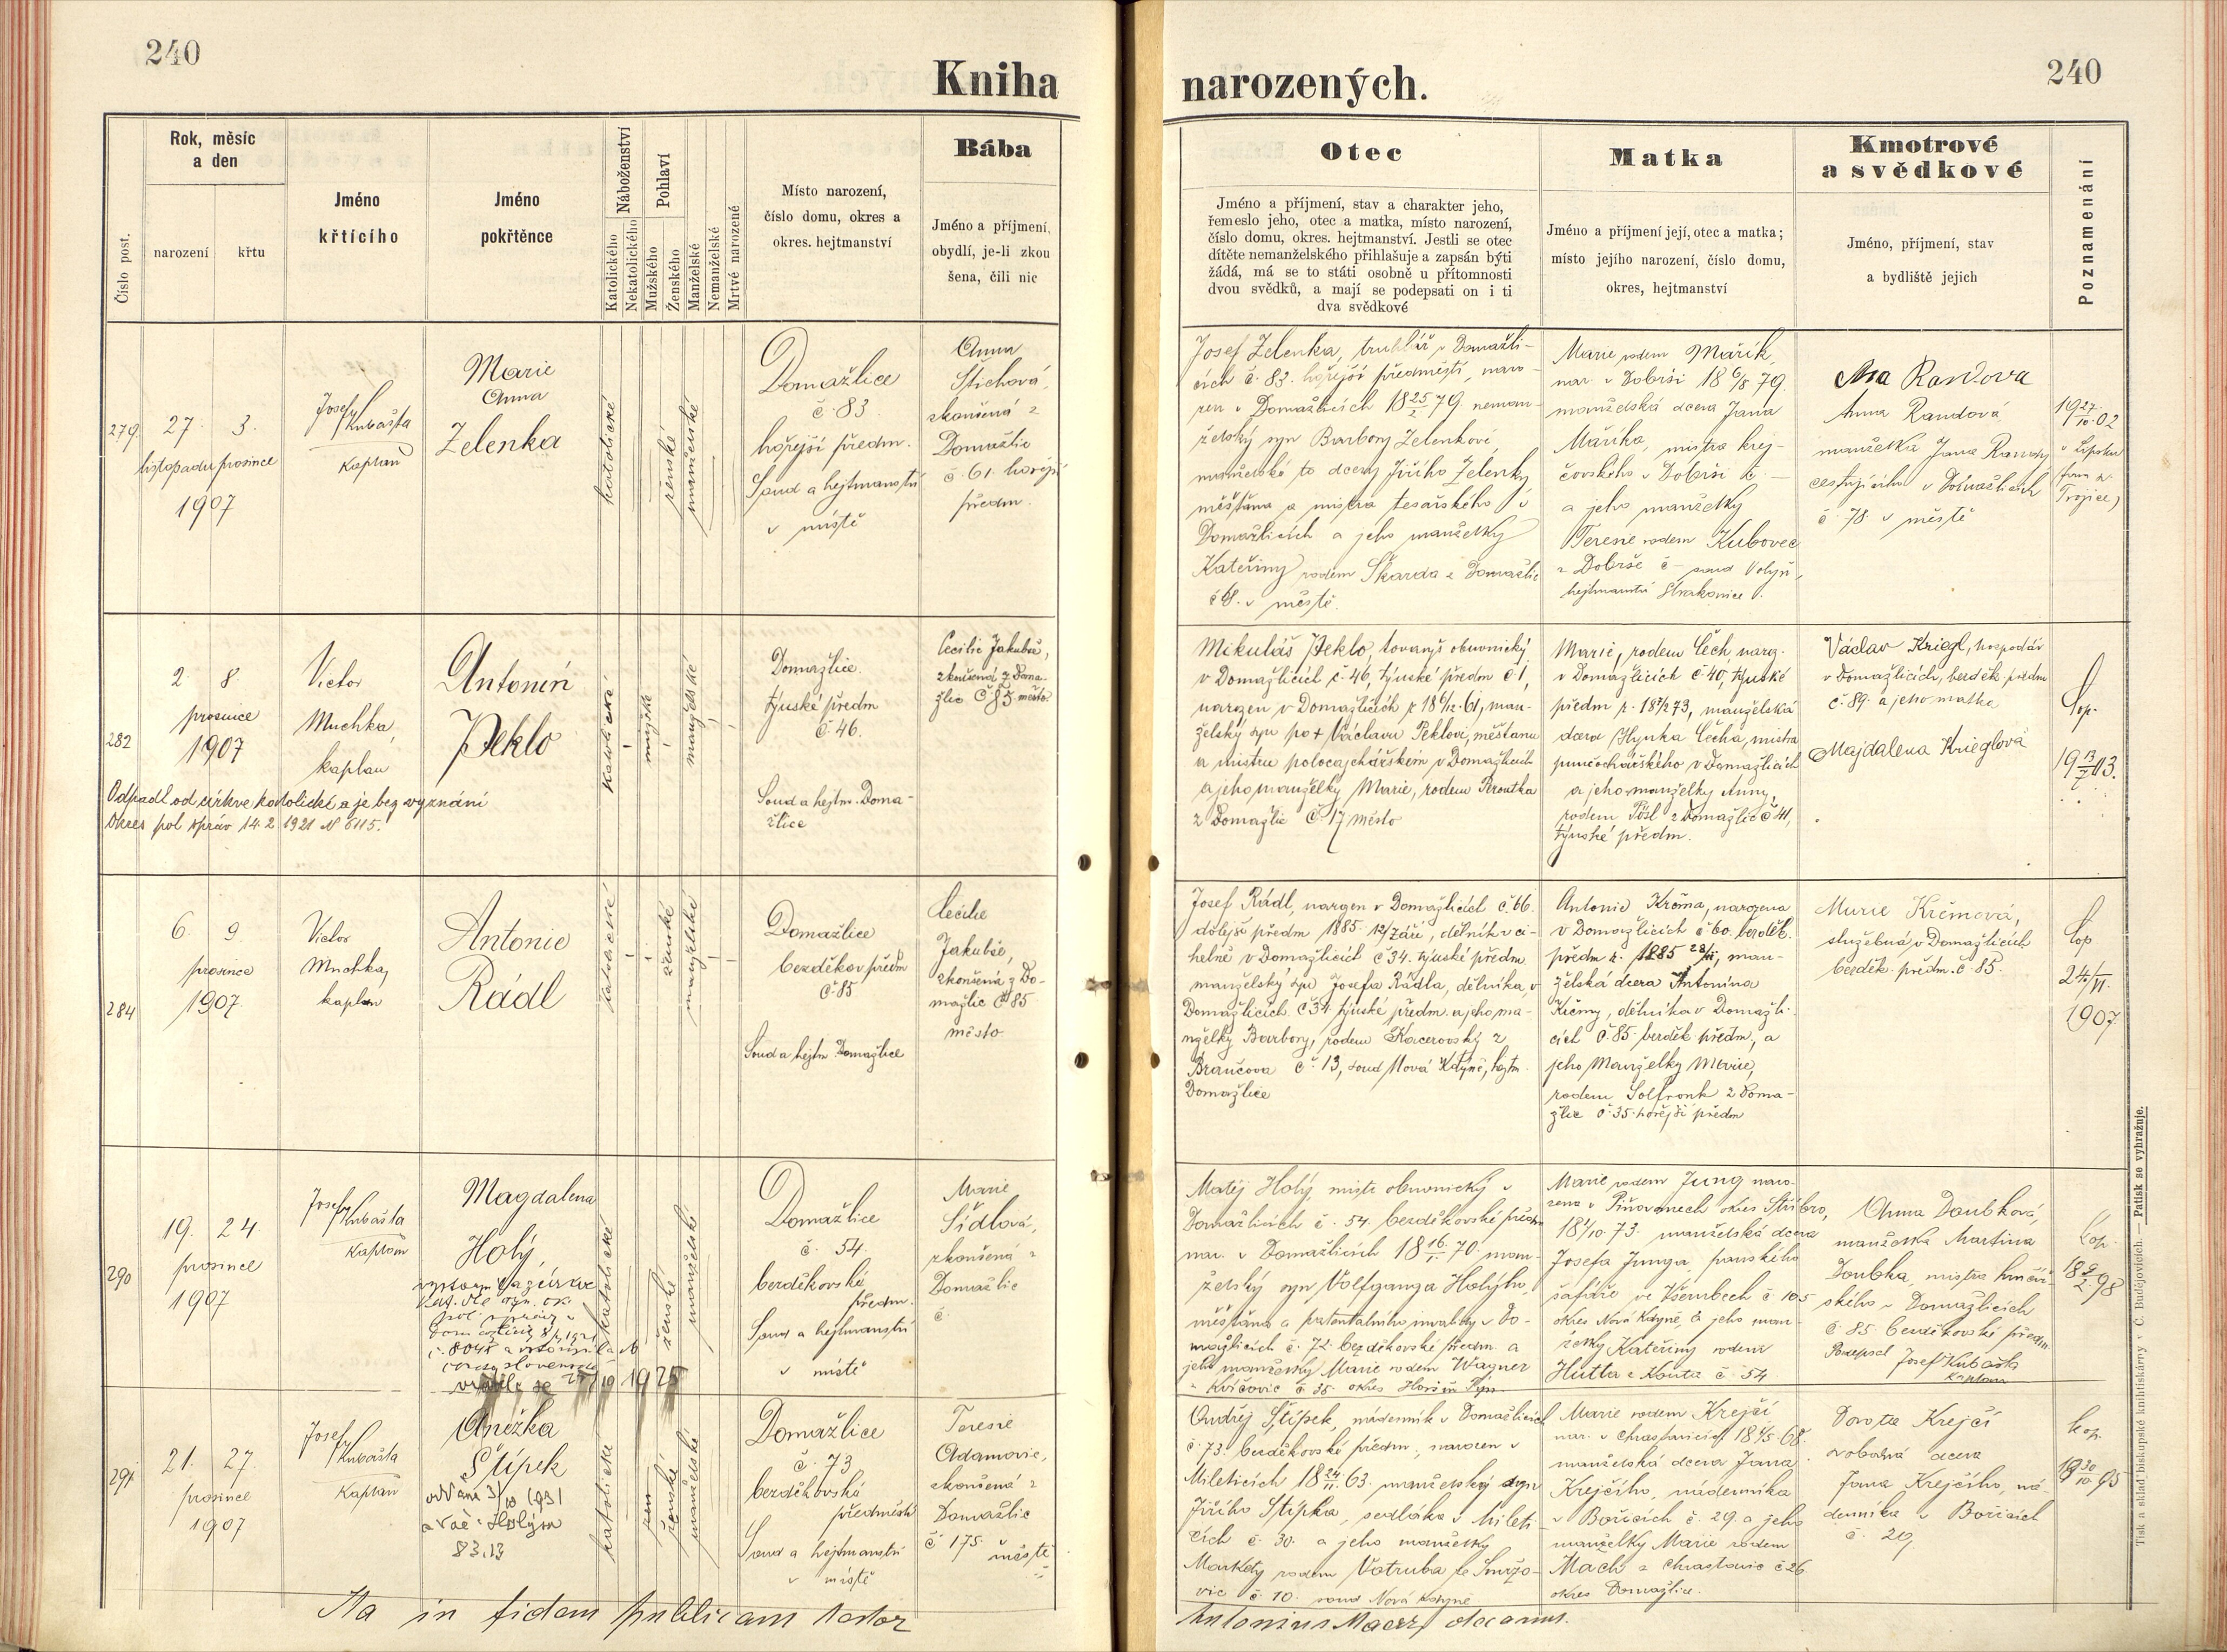 240
Kniha
narozených.
240
Číslo post.
Rok, měsíc
a den
narození
křtu
Jméno
křtícího
Jméno
pokřtěnce
Náboženství
Katolického
Nekatolického
Pohlaví
Mužského
Ženského
Manželské
Nemanželské
Mrtvé narozené
Místo narození,
číslo domu, okres a
okres. hejtmanství
Bába
Jméno a příjmení,
obydlí, je-li zkou
šena, čili nic
Otec
Jméno a příjmení, stav a charakter jeho,
řemeslo jeho, otec a matka, místo narození,
číslo domu, okres. hejtmanství. Jestli se otec
dítěte nemanželského přihlašuje a zapsán býti
žádá, má se to státi osobně u přítomnosti
dvou svědků, a mají se podepsati on i ti
dva svědkové
Matka
Jméno a příjmení její, otec a matka;
místo jejího narození, číslo domu,
okres, hejtmanství
Kmotrové
a svědkové
Jméno, příjmení, stav
a bydliště jejich
Poznamenání
279.
27. 3.
listopadu prosince
1907
Josef
Kubašta
kaplan
Marie
Anna
Zelenka
katolické
ženské
manželské
Domažlice
č. 83
hořejší předm.
Soud a hejtmanství
v místě
Anna
Štichová,
zkoušená z
Domažlic
č. 61. hořejší
předm.
Josef Zelenka, truhlář v Domažli-
cích č. 83. hořejší předměstí, naro-
zen v Domažlicích 18 25/2 79. neman-
želský syn Barbory Zelenkové,
manželské to dcery Jiřího Zelenky
měšťana a mistra tesařského v
Domažlicích a jeho manželky
Kateřiny rodem Škarda z Domažlic
v městě.
Marie rodem Mařík,
nar. v Dobrši 18 6/8 79.
manželská dcera Jana
Maříka, mistra krej-
čovského v Dobrši č. —
a jeho manželky
Terezie rodem Kubovec
z Dobrše č – soud Volyň,
hejtmanství Strakonice.
Anna Randová
manželka Jana Randy
cestujícího v Domažlicích
č. 78. v městě
19 27/10 02
v Lipsku
Trojice)
282
2. 8.
prosince
1907
Victor
Muchka,
kaplan
Antonín
Peklo
Odpadl od církve katolické a je bez vyznání
Okres pol správ 14. 2. 1921 N 6115.
katolické
mužské
manželské
Domažlice.
týnské předm
č. 46.
Soud a hejtm. Doma-
žlice
Cecilie Jakubše,
zkoušená z Doma-
žlic č 85 město.
Mikuláš Peklo, tovaryš obuvnický
v Domažlicích č. 46, týnské předm č 1,
narozen v Domažlicích r 18 6/12 61, man-
želský syn po + Václavu Peklovi, měšťanu
a mistru v Domažlicích
a jeho manželky Marie, rodem Kroutka
z Domažlic č. 17 město
Marie, rodem Čech, naroz.
v Domažlicích č. 40, týnské
předm r. 73, manželská
dcera Hynka Čecha, mistra
punčochářského v Domažlicích
a jeho manželky Anny,
rodem Pösl z Domažlic č 41,
týnské předm.
Václav Kriegl, hospodář
v Domažlicích, bezděk. předm
č. 89. a jeho matka
Majdalena Krieglová
Cop.
284
6. 9
prosince
1907.
Victor
Muchka,
kaplan
Antonie
Rádl
katolické
ženské
manželské
Domažlice
bezděkov předm
č 85
Soud a hejtm Domažlice
Cecilie
Jakubše,
zkoušená z Do-
mažlic č 85
město
Josef Rádl, narozen v Domažlicích č. 66.
dolejší předm 1885 12/září, dělník v ci-
helně v Domažlicích č 34. týnské předm
manželský syn Josefa Rádla, dělníka, v
Domažlicích č 34. týnské předm. a jeho ma-
nželky Barbory, rodem Kacerovský z
Braučova č. 13, soud Nová Kdyně, hejtm.
Domažlice
Antonie Krčma, narozena
v Domažlicích č. 60. bezděk.
předm r. 1885, man-
želská dcera Antonína
Krčmy, dělníka v Domažli-
cích č 85. bezděk předm, a
jeho manželky Marie,
rodem Solfronk z Doma-
žlic č. 35. hořejší předm
Marie Krčmová,
služebná v Domažlicích
bezděk. předm. č 85.
Cop
24/VI.
1907
290
19. 24.
prosince
1907
Josef
Kubašta
kaplan
Magdalena
Holý,
vystoupila z církve
kat. dle ozn. ok.
pol. správy v
Domažlicích
č. 8045 a vstoupila do
církve československé
vrátila se 1925
katolické
ženské
manželské
Domažlice
č. 54.
bezděkovské
předm.
Soud a hejtmanství
v místě
Marie
Šídlová,
zkoušená z
Domažlic
č.
Matěj Holý, mistr obuvnický v
Domažlicích č. 54. bezděkovské předm
nar. v Domažlicích 18 16/1 70. man-
želský syn Volfganga Holýho,
měšťana a patentálního invalidy v Do-
mažlicích č. 72. bezděkovské předm. a
jeho manželky Marie rodem Wagner
z č 35 okres Horšův Týn.
Marie rodem Jung naro-
zena v Piňovanech okres Stříbro,
73. manželská dcera
Josefa Junga, panského
šafáře ve Všerubech č 105
okres Nová Kdyně, a jeho man-
želky Kateřiny rodem
Hutta z Kouta č. 54
Anna Doubková,
manželka Martina
Doubka, mistra hrnčíř-
ského v Domažlicích
č. 85 bezděkovské předm.
Podepsal Josef Kubašta
kaplan
Cop.
18 8/2 98
291
21. 27.
prosince
1907
Josef
Kubašta
Kaplan
Anežka
Štípek
oddána 3/10 1931
s Vác. Holým
83.13
katolické
ženské
manželské
Domažlice
č. 73
bezděkovské
předměstí
Soud a hejtmanství
v místě
Terezie
Adamovic,
zkoušená z
Domažlic
č. 175. městě
Ondřej Štípek, nádenník v Domažlicích
č. 73. bezděkovské předm., narozen v
Mileticích 18 24/11 63. manželský syn
Jiřího Štípka, sedláka v Mileti-
cích č. 30. a jeho manželky
Markéty rodem Votruba ze Smržo-
vic č. 10. soud Nová Kdyně
Marie rodem Krejčí
nar. v Chrastavicích 68.
manželská dcera Jana
Krejčího, nádenníka
v Bořicích č. 29. a jeho
manželky Marie rodem
Mach z Chrastavic č 26
okres Domažlice.
Dorota Krejčí
svobodná dcera
Jana Krejčího, ná-
denníka v Bořicích
č. 29
kop.
Ita in fidem publicam testor
Antonius decanus.
Tisk a sklad biskupské knihtiskárny v Č. Budějovicích. — Patisk se vyhražuje.